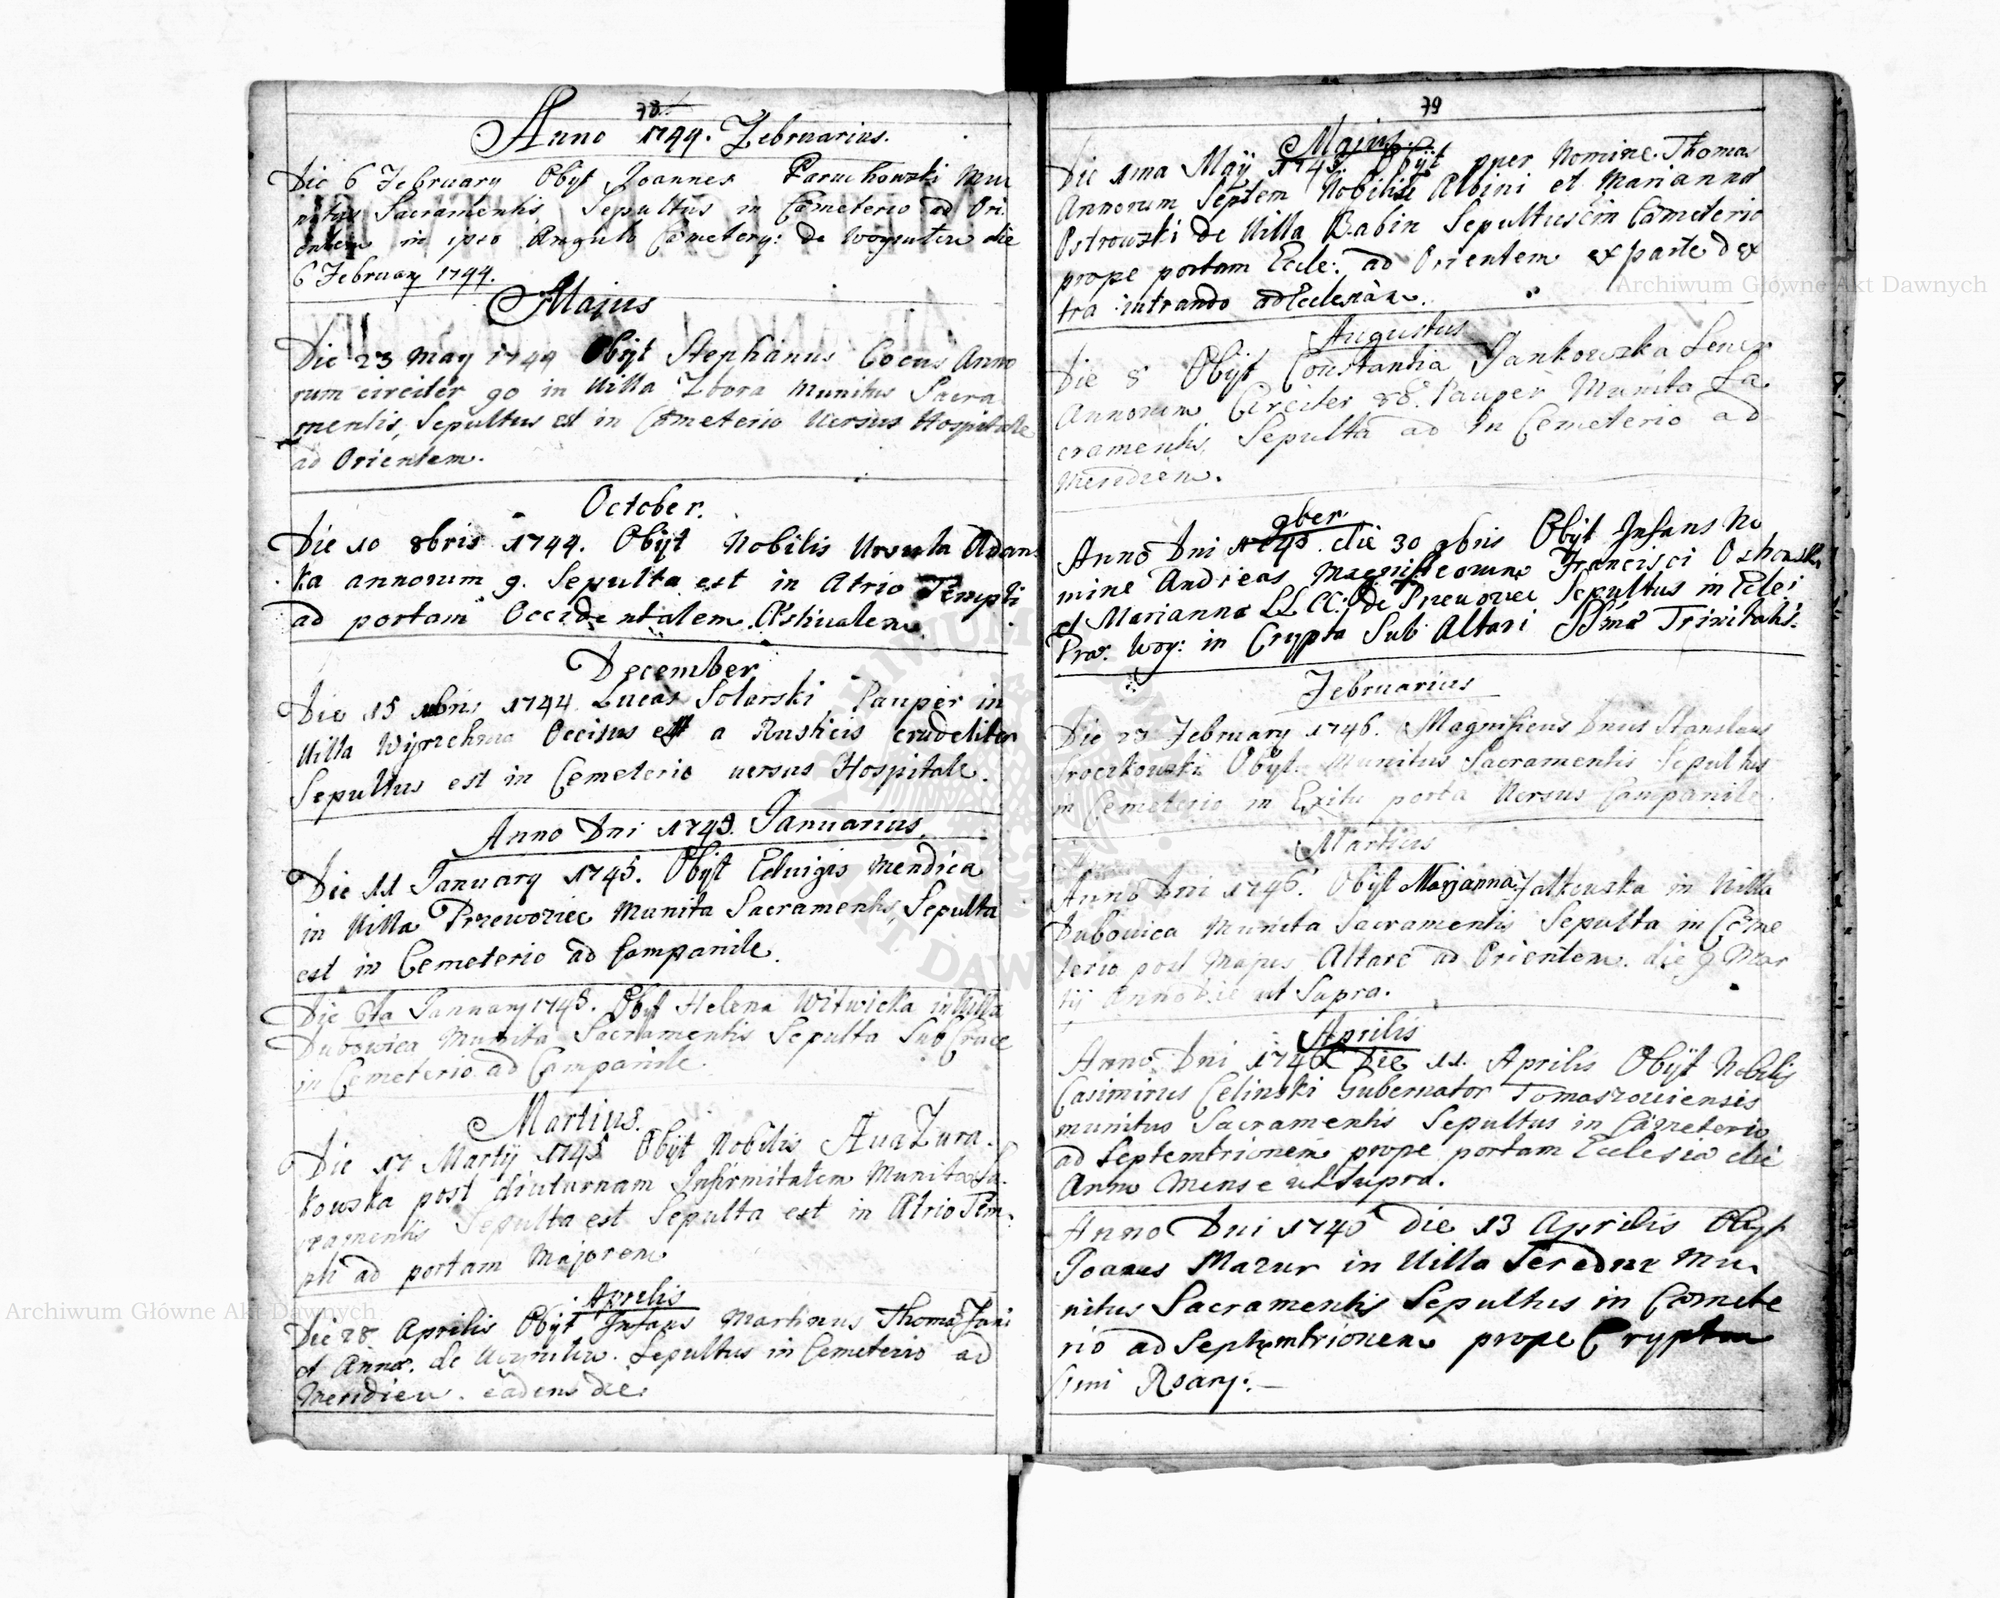 78
Anno 1744. Februarius.
Die 6 February Obyt Joannes Paruchowski Mu
nitus Sacramentis, Sepultus in Cæmeterio ad Ori
entem in ipso Angulo Cæmetery: de Woysutin die
6 February 1744.
Majus
Die 23 May 1744 Obijt Stephanus Cocus Anno
rum circiter 90 in Villa Zbora Munitus Sacra
mentis, Sepultus est in Cæmeterio Versus Hospitale
ad Orientem.
October.
Die 10 8bris 1744. Obijt Nobilis Ursula Adams
ka annorum 9. Sepulta est in Atrio Templi
ad portam Occidentalem
December
Die 15 1744 Lucas Solarski Pauper in
Villa Occisus est a Rusticis crudeliter
Sepultus est in Cemeterio versus Hospitale.
Anno Dni 1745. Januarius.
Die 11 January 1745. Obijt Edvigis Mendica
in Villa Przewoziec Munita Sacramentis, Sepulta
est in Cemeterio ad Campanile.
Die 6ta January 1745. Obijt Helena Witwicka in Villa
Dubowica Munita Sacramentis Sepulta Sub Cruce
in Cemeterio ad Campanile
Martius.
Die 17 Martij 1745 Obijt Nobilis Ana Zura
kowska post diuturnam Infirmitatem Munita Sa
cramentis Sepulta est Sepulta est in Atrio Tem
pli ad portam Majorem
Aprelis
Die 28 Aprilis Obijt Infans Martinus Thomæ Jani
et Annæ. de Sepultus in Cemeterio ad
Meridiem. eadem die.
79
Majus
Die 1ma Maij 1745 Obijt puer Nomine Thomas
Annorum Septem Nobilis Albini et Marianna
Ostrowski de Villa Babin Sepultus in Cæmeterio
prope portam Eccle: ad Orientem ex parte dex
tra intrando ad Ecclesiam.
Augustus
Die 8 Obijt Constantia Jankowska Senex
Annorum Circiter 88. Pauper Munita Sa
cramentis, Sepulta ad in Cemeterio ad
Meridiem.
9ber
Anno Dni 1745. die 30 9bris Obijt Infans No
mine Andreas Magnificorum Francisci
et Marianna LL CC: de Przewoziec Sepultus in Eclei
Par. Woy: in Crypta Sub Altari SSmæ Trinitatis.
Februarius
Die 27 February 1746. Magnificus Dnus Stanslaus
Sroczkowski Obijt. Munitus Sacramentis Sepultus
in Cemeterio in Exitu porta Versus Campanile.
Martius
Anno Dni 1746. Obijt Marjanna Jalkowska in Villa
Dubowica Munita Sacramentis Sepulta in Ceme
terio post Majus Altare ad Orientem. die 9 Mar
tij Anno die ut Supra.
Aprilis
Anno Dni 1746 Die 11. Aprilis Obijt Nobilis
Casimirus Celinski Gubernator Tomaszoviensis
munitus Sacramentis Sepultus in Cæmeterio
ad Septemtrionem prope portam Ecclesia die
Anno Mense ut Supra.
Anno Dni 1746 Die 13 Aprilis Obijt
Joanes Mazur in Villa Seredne Mu
nitus Sacramentis Sepultus in Cæmete
rio ad Septemtrionem prope Cryptam
Rosary:
Archiwum Główne Akt Dawnych
Archiwum Główne Akt Dawnych